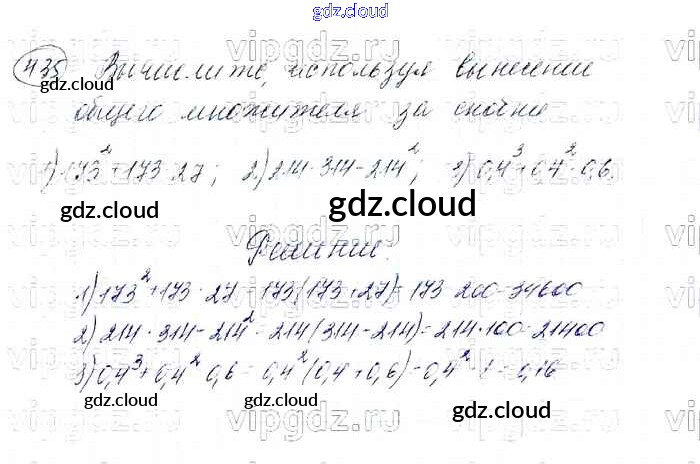 gdz.cloud
435 Вычислите, используя вынесение
gdz.cloud gdz.cloud
общего множителя за скобки
1) 173² + 173 · 27; 2) 214 · 314 - 214²; 3) 0,4³ + 0,4² · 0,6.
gdz.cloud gdz.cloud gdz.cloud
Решение.
1) 173² + 173 · 27 = 173(173 + 27) = 173 · 200 = 34600
2) 214 · 314 - 214² = 214(314 - 214) = 214 · 100 = 21400
3) 0,4³ + 0,4² · 0,6 = 0,4²(0,4 + 0,6) = 0,4² · 1 = 0,16
gdz.cloud gdz.cloud gdz.cloud
vipgdz.ru